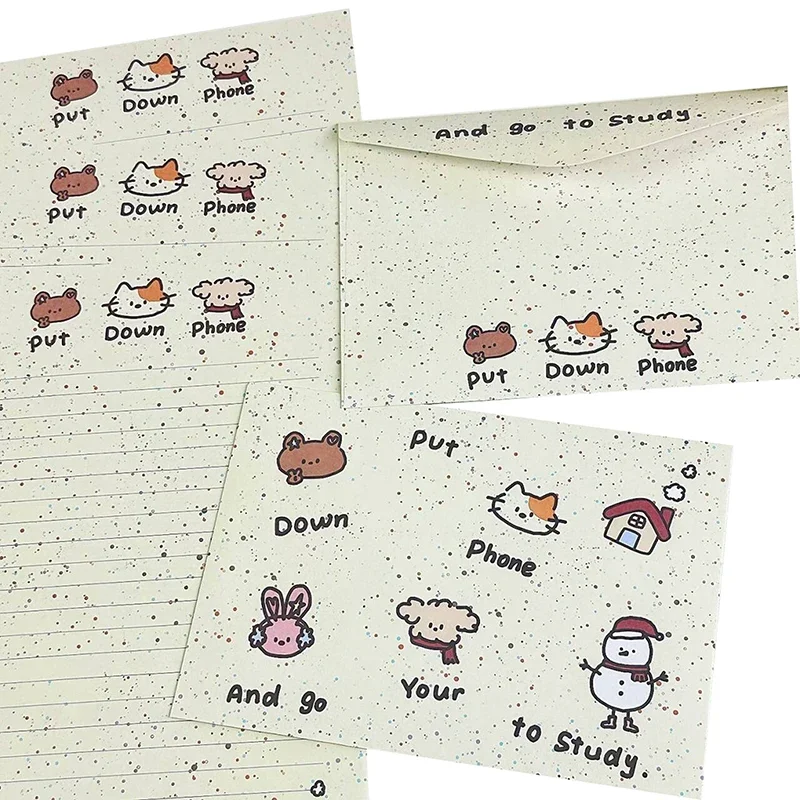 Put Down Phone
Put Down Phone
Put Down Phone
And go to Study.
Put Down Phone
Put
Down
Phone
And go
Your
to Study.